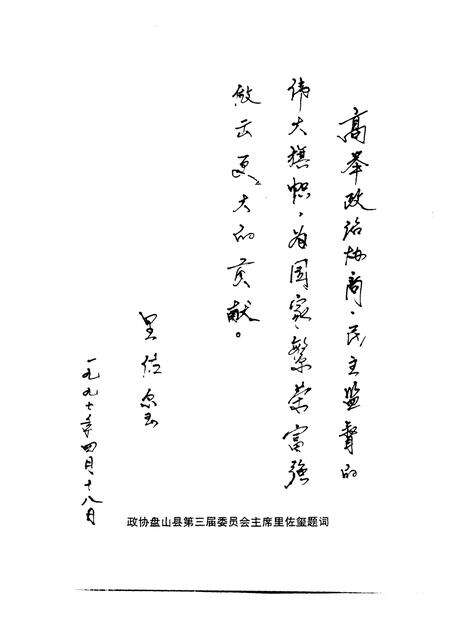 高举政治协商、民主监督的
伟大旗帜，为国家繁荣富强
做出更大的贡献。
里佐玺
一九九七年四月十八日
政协盘山县第三届委员会主席里佐玺题词